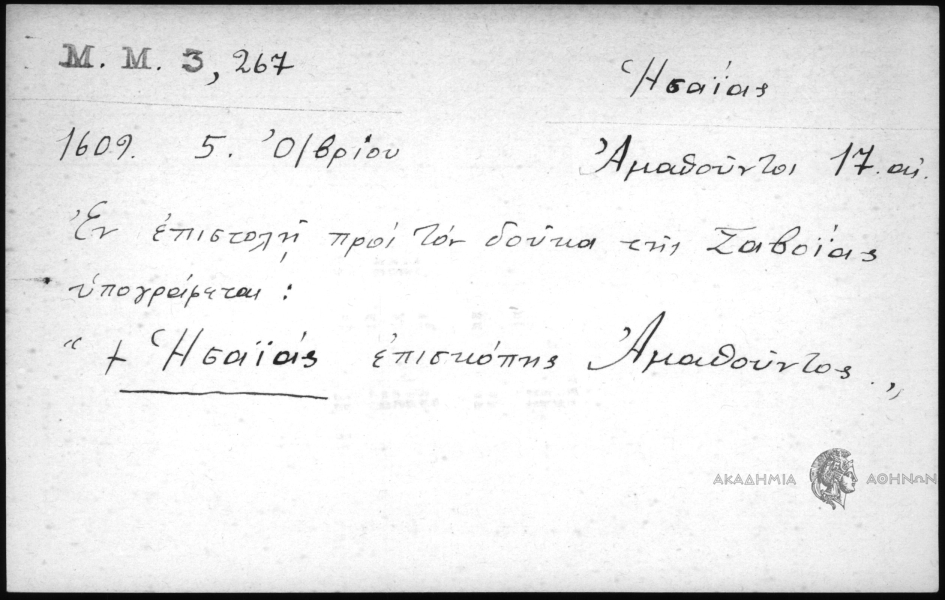 Μ. Μ. 3, 267
Ἡσαΐας
1609. 5. Ὀ/βρίου
Ἀμαθοῦντος 17. αἰ.
Ἐν ἐπιστολῇ πρὸς τὸν δοῦκα τῆς Σαβοΐας
ὑπογράφεται :
“ + Ἡσαΐάς ἐπισκόπης Ἀμαθοῦντος. „
ΑΚΑΔΗΜΙΑ ΑΘΗΝΩΝ